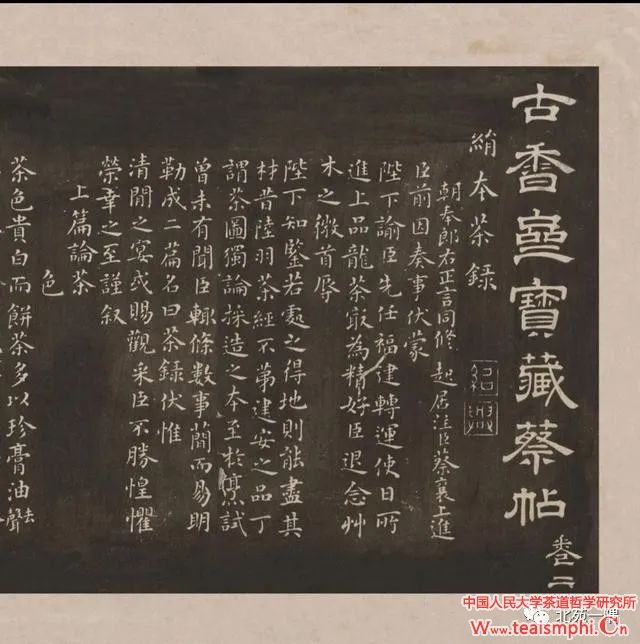 古香齋寶藏蔡帖 卷二
絹本茶錄
紹興
朝奉郎右正言同修 起居注臣蔡襄上進
臣前因奏事伏蒙
陛下諭臣先任福建轉運使日所
進上品龍茶㝡為精好臣退念艸
木之微首辱
陛下知鑒若處之得地則能盡其
材昔陸羽茶經不第建安之品丁
謂茶圖獨論採造之本至於烹試
曾未有聞臣輒條數事簡而易明
勒成二篇名曰茶錄伏惟
清閒之宴或賜觀采臣不勝惶懼
榮幸之至謹叙
上篇論茶
色
茶色貴白而餅茶多以珍膏油去聲
中国人民大学茶道哲学研究所
北苑一隅
www.teaismphi.Cn